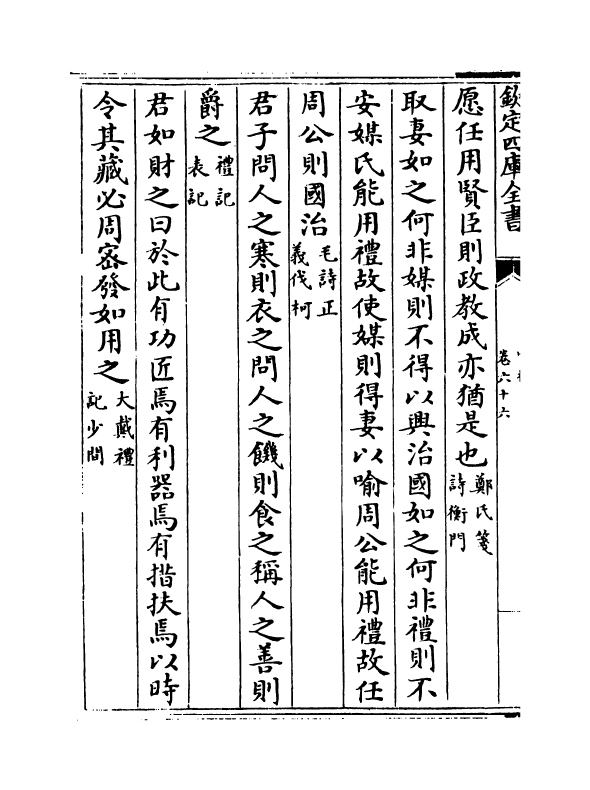 欽定四庫全書
卷六十六
愿任用賢臣則政教成亦猶是也鄭氏箋詩衡門
取妻如之何非媒則不得以興治國如之何非禮則不
安媒氏能用禮故使媒則得妻以喻周公能用禮故任
周公則國治毛詩正義伐柯
君子問人之寒則衣之問人之饑則食之稱人之善則
爵之禮記表記
君如財之曰於此有功匠焉有利器焉有措扶焉以時
令其藏必周宻發如用之大戴禮記少間